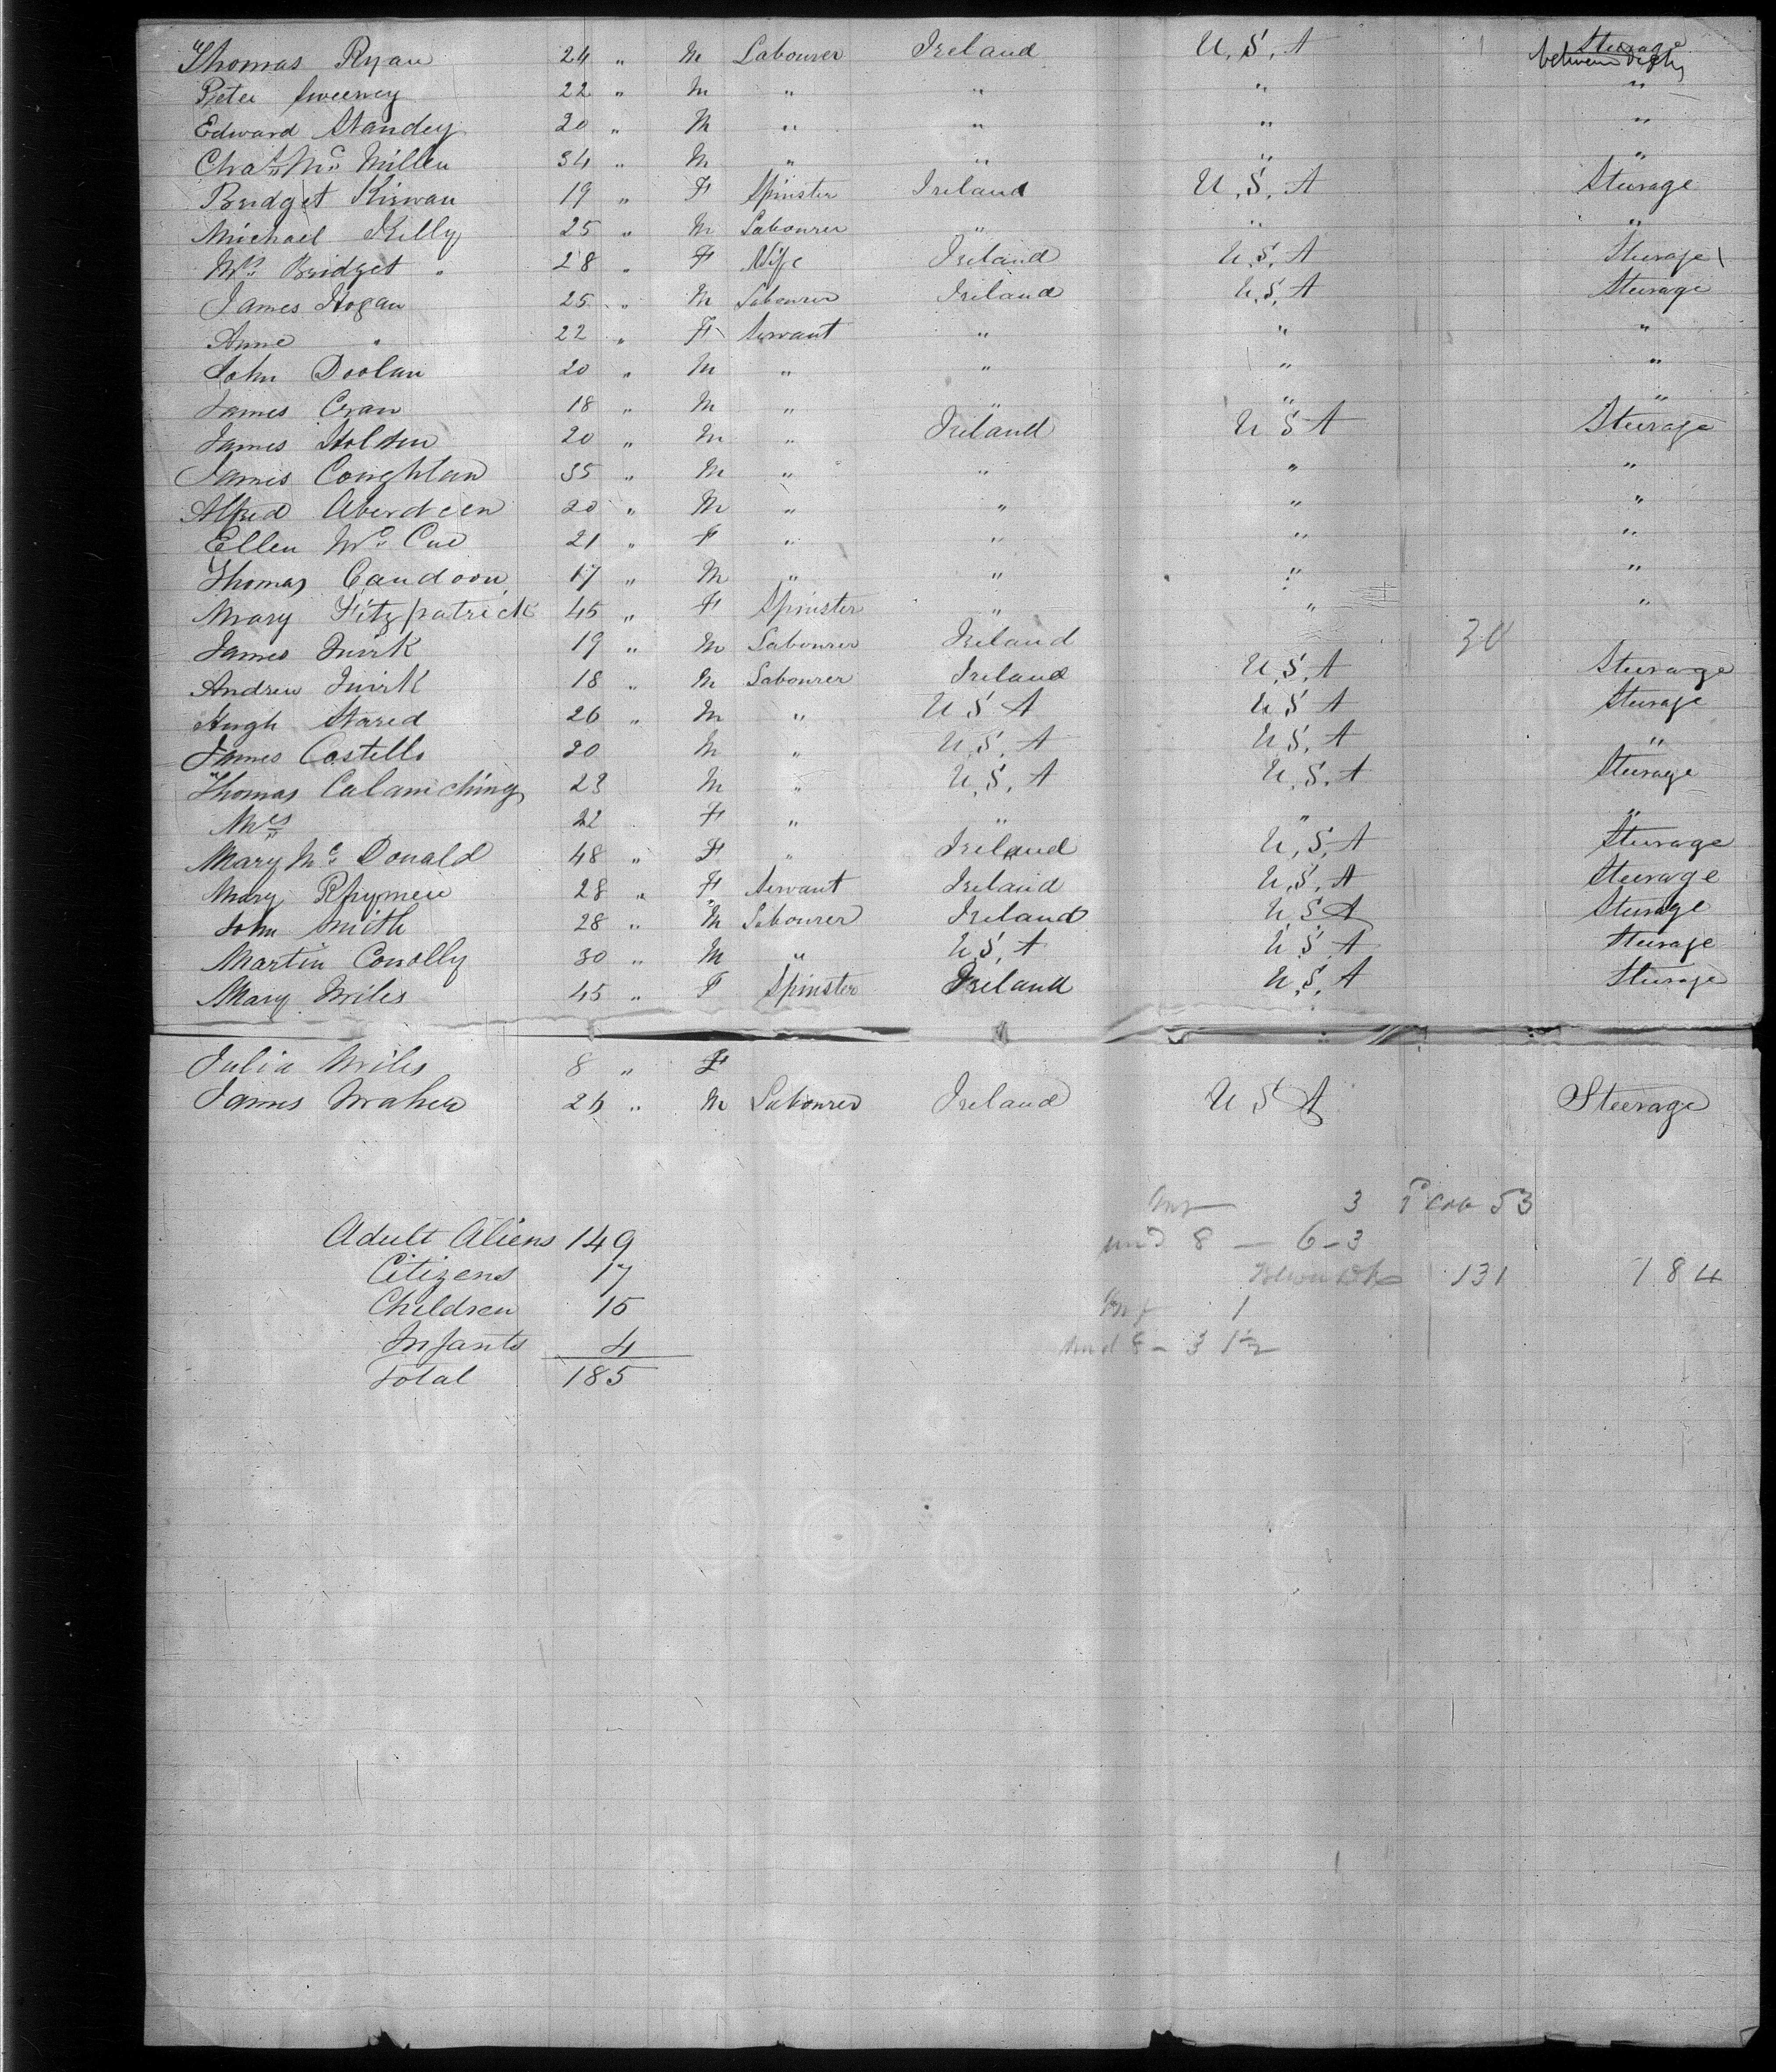 Thomas Ryan 24 " M Labourer Ireland U,S,A Steerage between decks
Peter Sweeney 22 " M " " " "
Edward Standey 20 " M " " " "
Chas Mc Millen 34 " M " " " "
Bridget Kirwan 19 " F Spinster Ireland U,S,A Steerage
Michael Kelly 25 " M Labourer " " "
Mrs Bridget " 28 " F Wife Ireland U,S,A Steerage
James Hogan 25 " M Labourer Ireland U,S,A Steerage
Anne " 22 " F Servant " " "
John Doolan 20 " M " " " "
James Cran 18 " M " " " "
James Holden 20 " M " Ireland U S A Steerage
James Coughlan 35 " M " " " "
Alfred Aberdeen 20 " M " " " "
Ellen Mc Cue 21 " F " " " "
Thomas 17 " M " " " "
Mary Fitzpatrick 45 " F Spinster " " "
James Quirk 19 " M Labourer Ireland 30
Andrew Quirk 18 " M Labourer Ireland U,S,A Steerage
Hugh 26 " M " U S A U S A Steerage
James Costello 20 M " U,S,A U S,A "
Thomas 23 M " U,S,A U,S,A Steerage
Mrs " 22 F " " " "
Mary Mc Donald 48 " F " Ireland U,S,A Steerage
Mary 28 " F Servant Ireland U,S,A Steerage
John Smith 28 " M Labourer Ireland U S A Steerage
Martin Conolly 30 " M " U S,A U S A Steerage
Mary Miles 45 " F Spinster Ireland U,S,A Steerage
Julia Miles 8 " F
James Maher 26 " M Labourer Ireland U S A Steerage
3 53
Adult Aliens 149
8 — 6-3
Citizens 17
131 184
Children 15
1
Infants 4
8 - 3 1½
Total 185